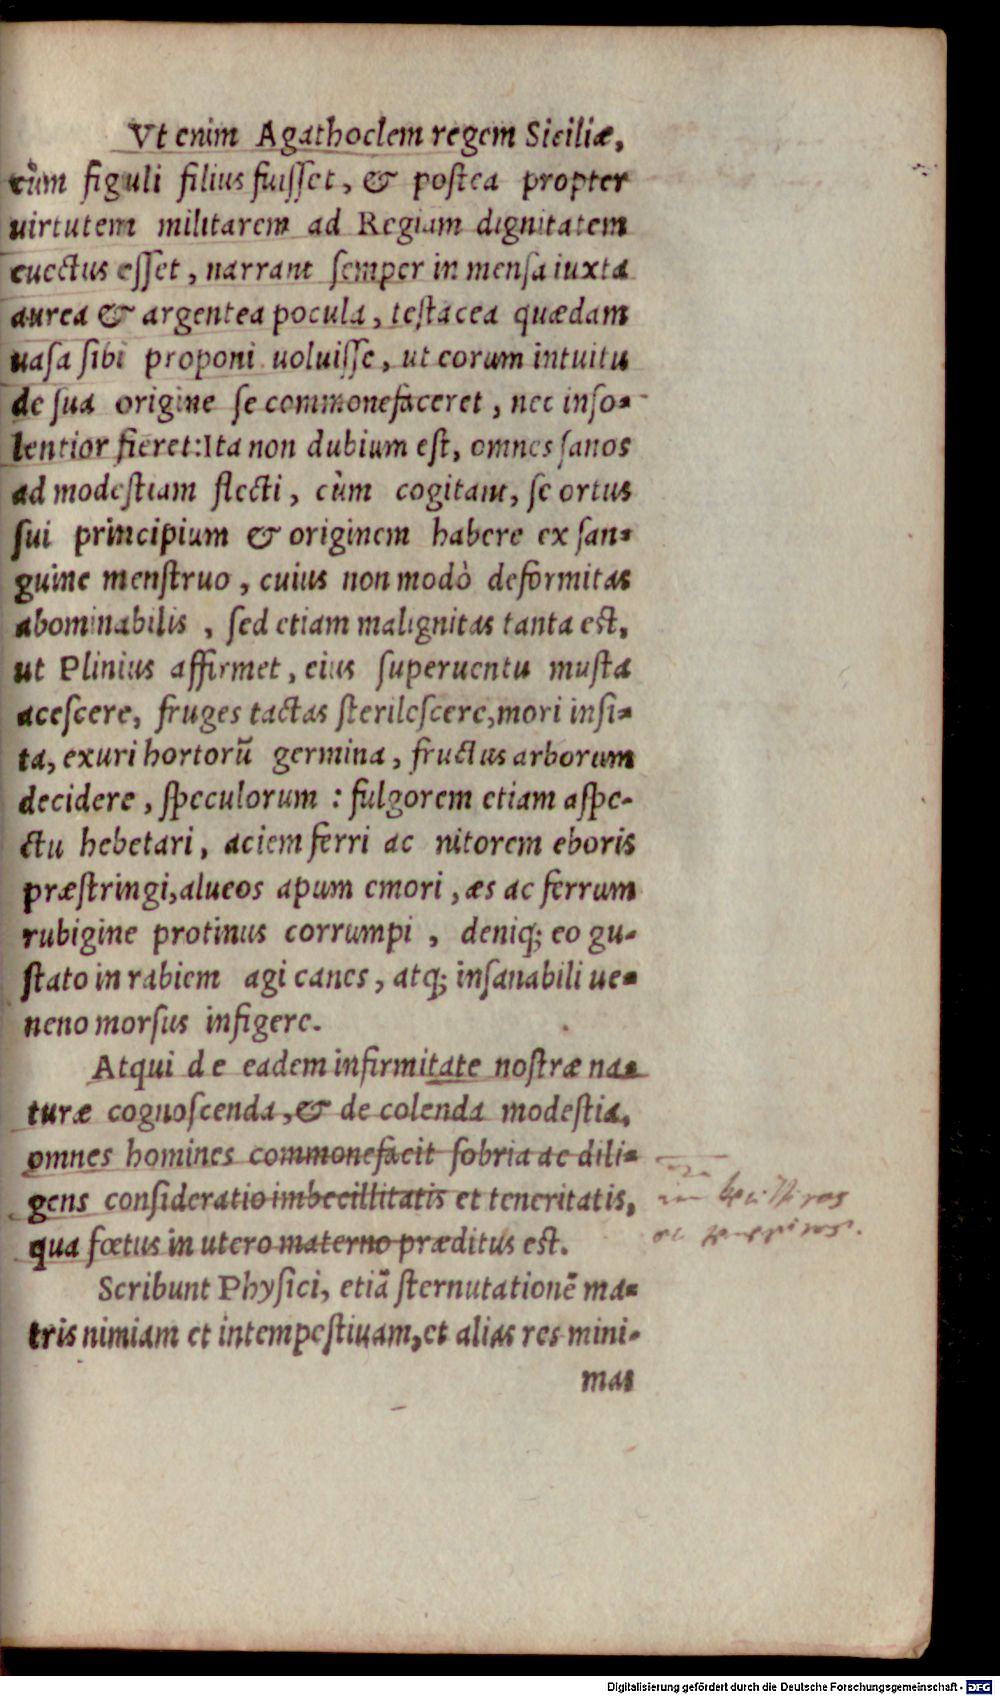 Vt enim Agathoclem regem Siciliæ,
cùm figuli filius fuisset, & postea propter
uirtutem militarem ad Regiam dignitatem
euectus esset, narrant semper in mensa iuxta
aurea & argentea pocula, testacea quædam
uasa sibi proponi uoluisse, ut eorum intuitu
de sua origine se commonefaceret, nec inso-
lentior fieret: Ita non dubium est, omnes sanos
ad modestiam flecti, cùm cogitant, se ortus
sui principium & originem habere ex san-
guine menstruo, cuius non modò deformitas
abominabilis, sed etiam malignitas tanta est,
ut Plinius affirmet, eius superuentu musta
acescere, fruges tactas sterilescere, mori insi-
ta, exuri hortorũ germina, fructus arborum
decidere, speculorum : fulgorem etiam aspe-
ctu hebetari, aciem ferri ac nitorem eboris
præstringi, alueos apum emori, æs ac ferrum
rubigine protinus corrumpi, deniq; eo gu-
stato in rabiem agi canes, atq; insanabili ue-
neno morsus infigere.
Atqui de eadem infirmitate nostræ na-
turæ cognoscenda, & de colenda modestia,
omnes homines commonefacit sobria ac dili-
gens consideratio imbecillitatis et teneritatis,
qua fœtus in utero materno præditus est.
Scribunt Physici, etiã sternutationẽ ma-
tris nimiam et intempestiuam, et alias res mini-
mas
Digitalisierung gefördert durch die Deutsche Forschungsgemeinschaft - DFG